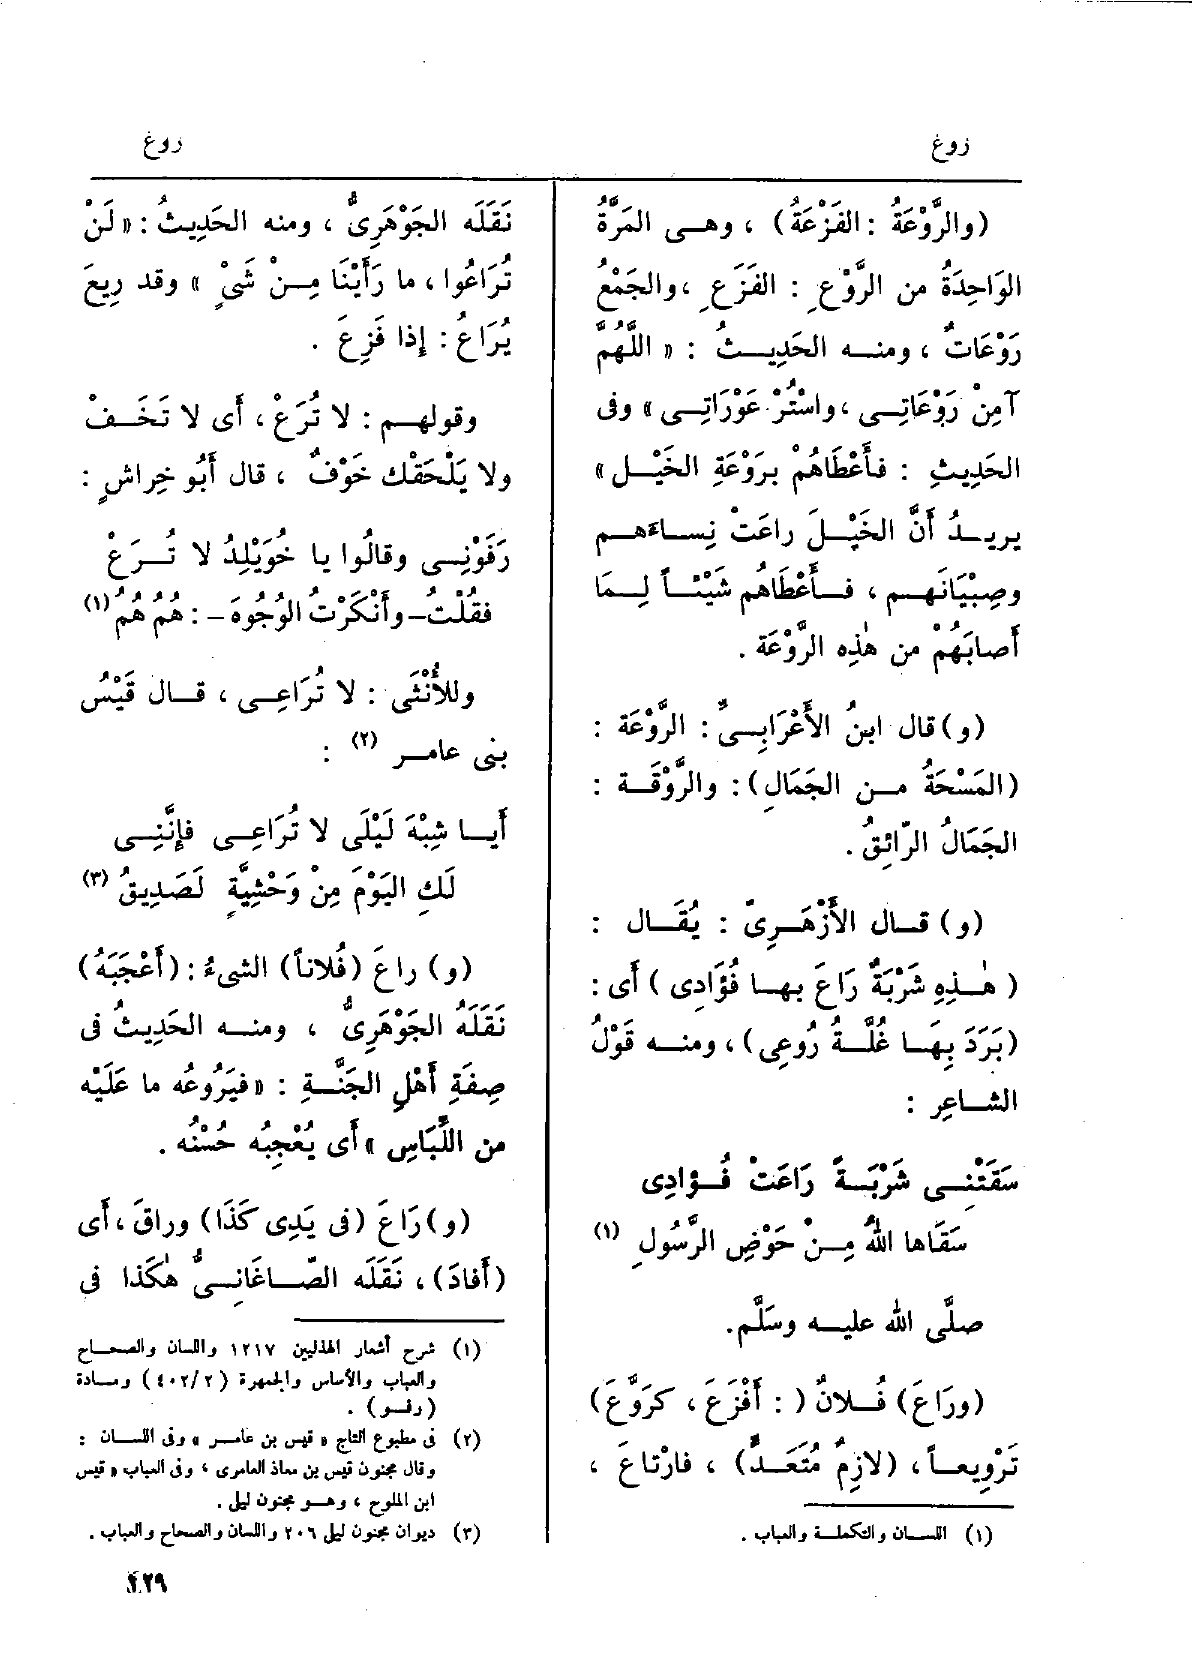 روع
روع
(والرَّوْعَةُ : الفَزْعَةُ) ، وهى المَرَّةُ
الوَاحِدَةُ من الرَّوْعِ : الفَزَعِ ، والجَمْعُ
رَوْعَاتٌ ، ومنه الحَدِيثُ : « اللَّهُمَّ
آمِنْ رَوْعَاتِى ، واسْتُرْ عَوْرَاتِى » وفى
الحَدِيثِ : فأَعْطَاهُمْ بِرَوْعَةِ الخَيْلِ »
يريدُ أَنَّ الخَيْلَ راعَتْ نِساءَهم
وصِبْيَانَهم ، فأَعْطَاهُم شَيْئاً لِمَا
أَصابَهُمْ من هٰذِه الرَّوْعَة .
(و) قال ابنُ الأَعْرَابِىُّ : الرَّوْعَة :
(المَسْحَةُ من الجَمَالِ) : والرَّوْقَة :
الجَمَالُ الرّائِقُ .
(و) قال الأَزْهَرِىّ : يُقَال :
(هٰذِهِ شَرْبَةٌ رَاعَ بها فُؤَادِى) أَى :
(بَرَدَ بِهَا غُلَّةُ رُوعِى) ، ومنه قَوْلُ
الشاعِرِ :
سَقَتْنِى شَرْبَةً رَاعَتْ فُؤادِى
سَقَاها اللهُ مِنْ حَوْضِ الرَّسُولِ (١)
صلَّى الله عليه وسَلَّم.
(ورَاعَ) فُلانٌ ( : أَفْزَعَ ، كرَوَّعَ)
تَرْوِيعاً ، (لازِمٌ مُتَعَدٍّ) ، فارْتاعَ ،
(١) اللسان والتكملة والعباب .
نَقَلَه الجَوْهَرِىُّ ، ومنه الحَدِيثُ : « لَنْ
تُرَاعُوا ، ما رَأَيْنَا مِنْ شَىْءٍ » وقد رِيعَ
يُرَاعُ : إِذا فَزِعَ .
وقولهم : لا تُرَعْ ، أَى لا تَخَفْ
ولا يَلْحَقْك خَوْفٌ ، قال أَبُو خِراشٍ :
رَفَوْنِى وقالُوا يا خُوَيْلِدُ لا تُرَعْ
فقُلْتُ - وأَنْكَرْتُ الوُجُوهَ - : هُمُ هُمُ (١)
وللأُنْثَى : لا تُرَاعِى ، قال قَيْسُ
بنى عامر (٢) :
أَيا شِبْهَ لَيْلَى لا تُرَاعِى فإِنَّنِى
لَكِ اليَوْمَ مِنْ وَحْشِيَّةٍ لَصَدِيقُ (٣)
(و) راعَ (فُلاناً) الشىءُ : (أَعْجَبَهُ)
نَقَلَهُ الجَوْهَرِىُّ ، ومنه الحَدِيثُ فى
صِفَةِ أَهْلِ الجَنَّةِ : « فيَرُوعُه ما عَلَيْه
من اللِّبَاسِ » أَى يُعْجِبُه حُسْنُه .
(و) رَاعَ (فى يَدِى كَذَا) وراقَ ، أَى
(أَفادَ) ، نَقَلَه الصّاغَانِىُّ هٰكَذا فى
(١) شرح أشعار الهذليين ١٢١٧ واللسان والصحاح
والعباب والأساس والجمهرة (٤٠٢/٢) ومادة
(رفو) .
(٢) فى مطبوع التاج « قيس بن عامر » وفى اللسان :
وقال مجنون قيس بن معاذ العامرى ، وفى العباب « قيس
ابن الملوح ، وهو مجنون ليلى .
(٣) ديوان مجنون ليلى ٢٠٦ واللسان والصحاح والعباب .